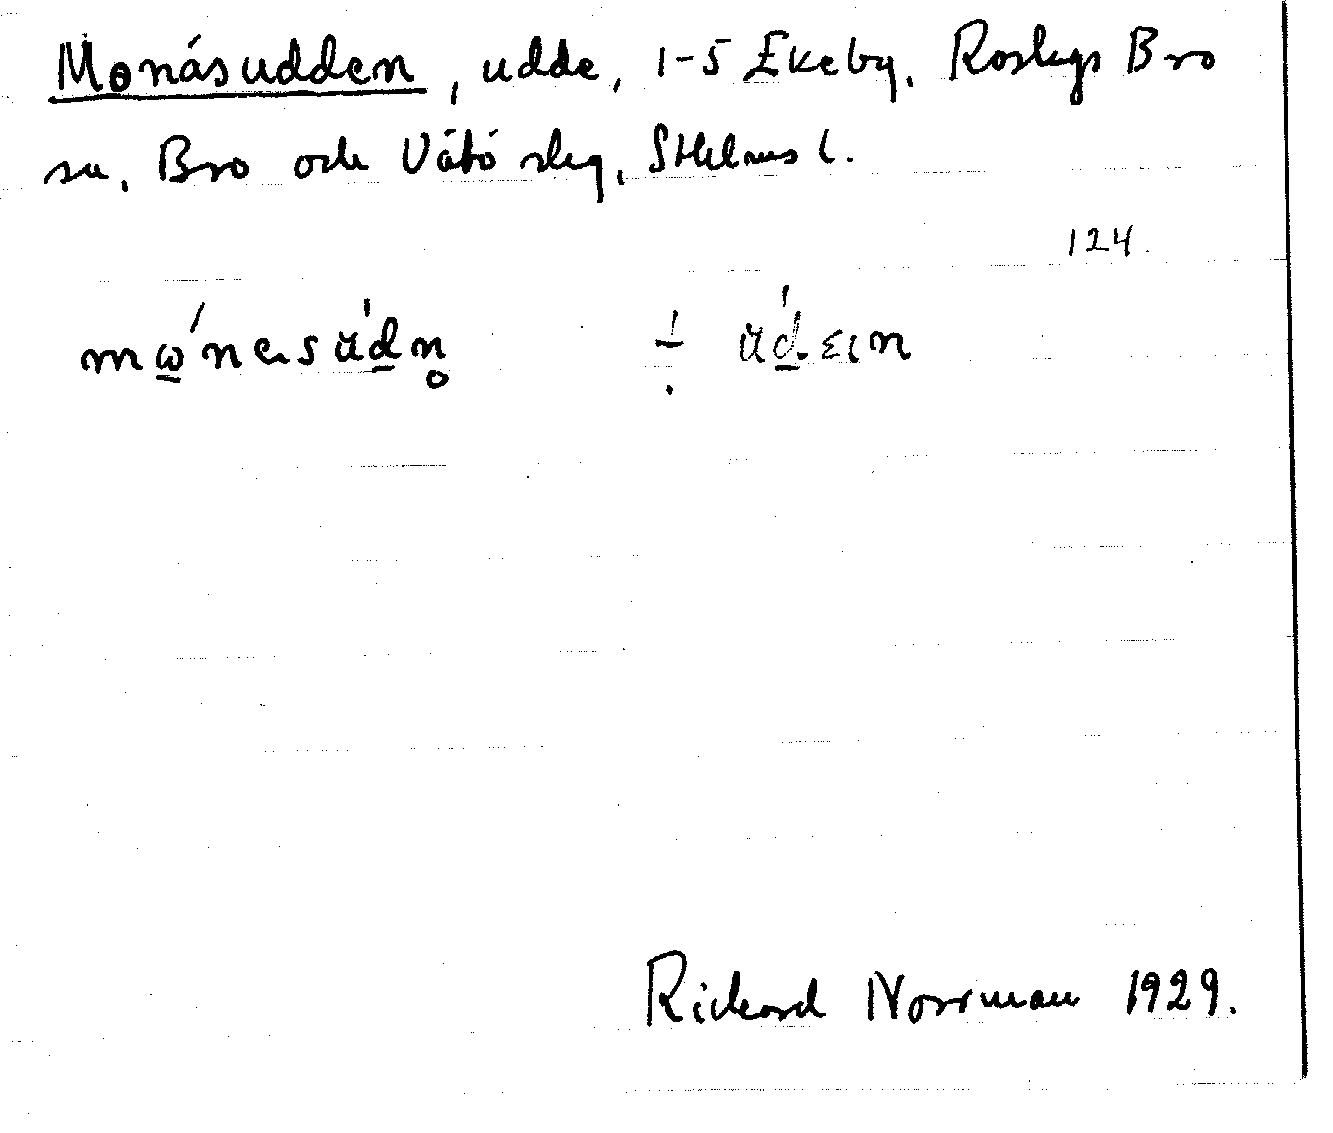 Monäsudden, udde, 1-5 Ekeby, Roslags Bro
sn, Bro och Vätö slg, Sthlms l.
124.
Rickard Norrman 1929.